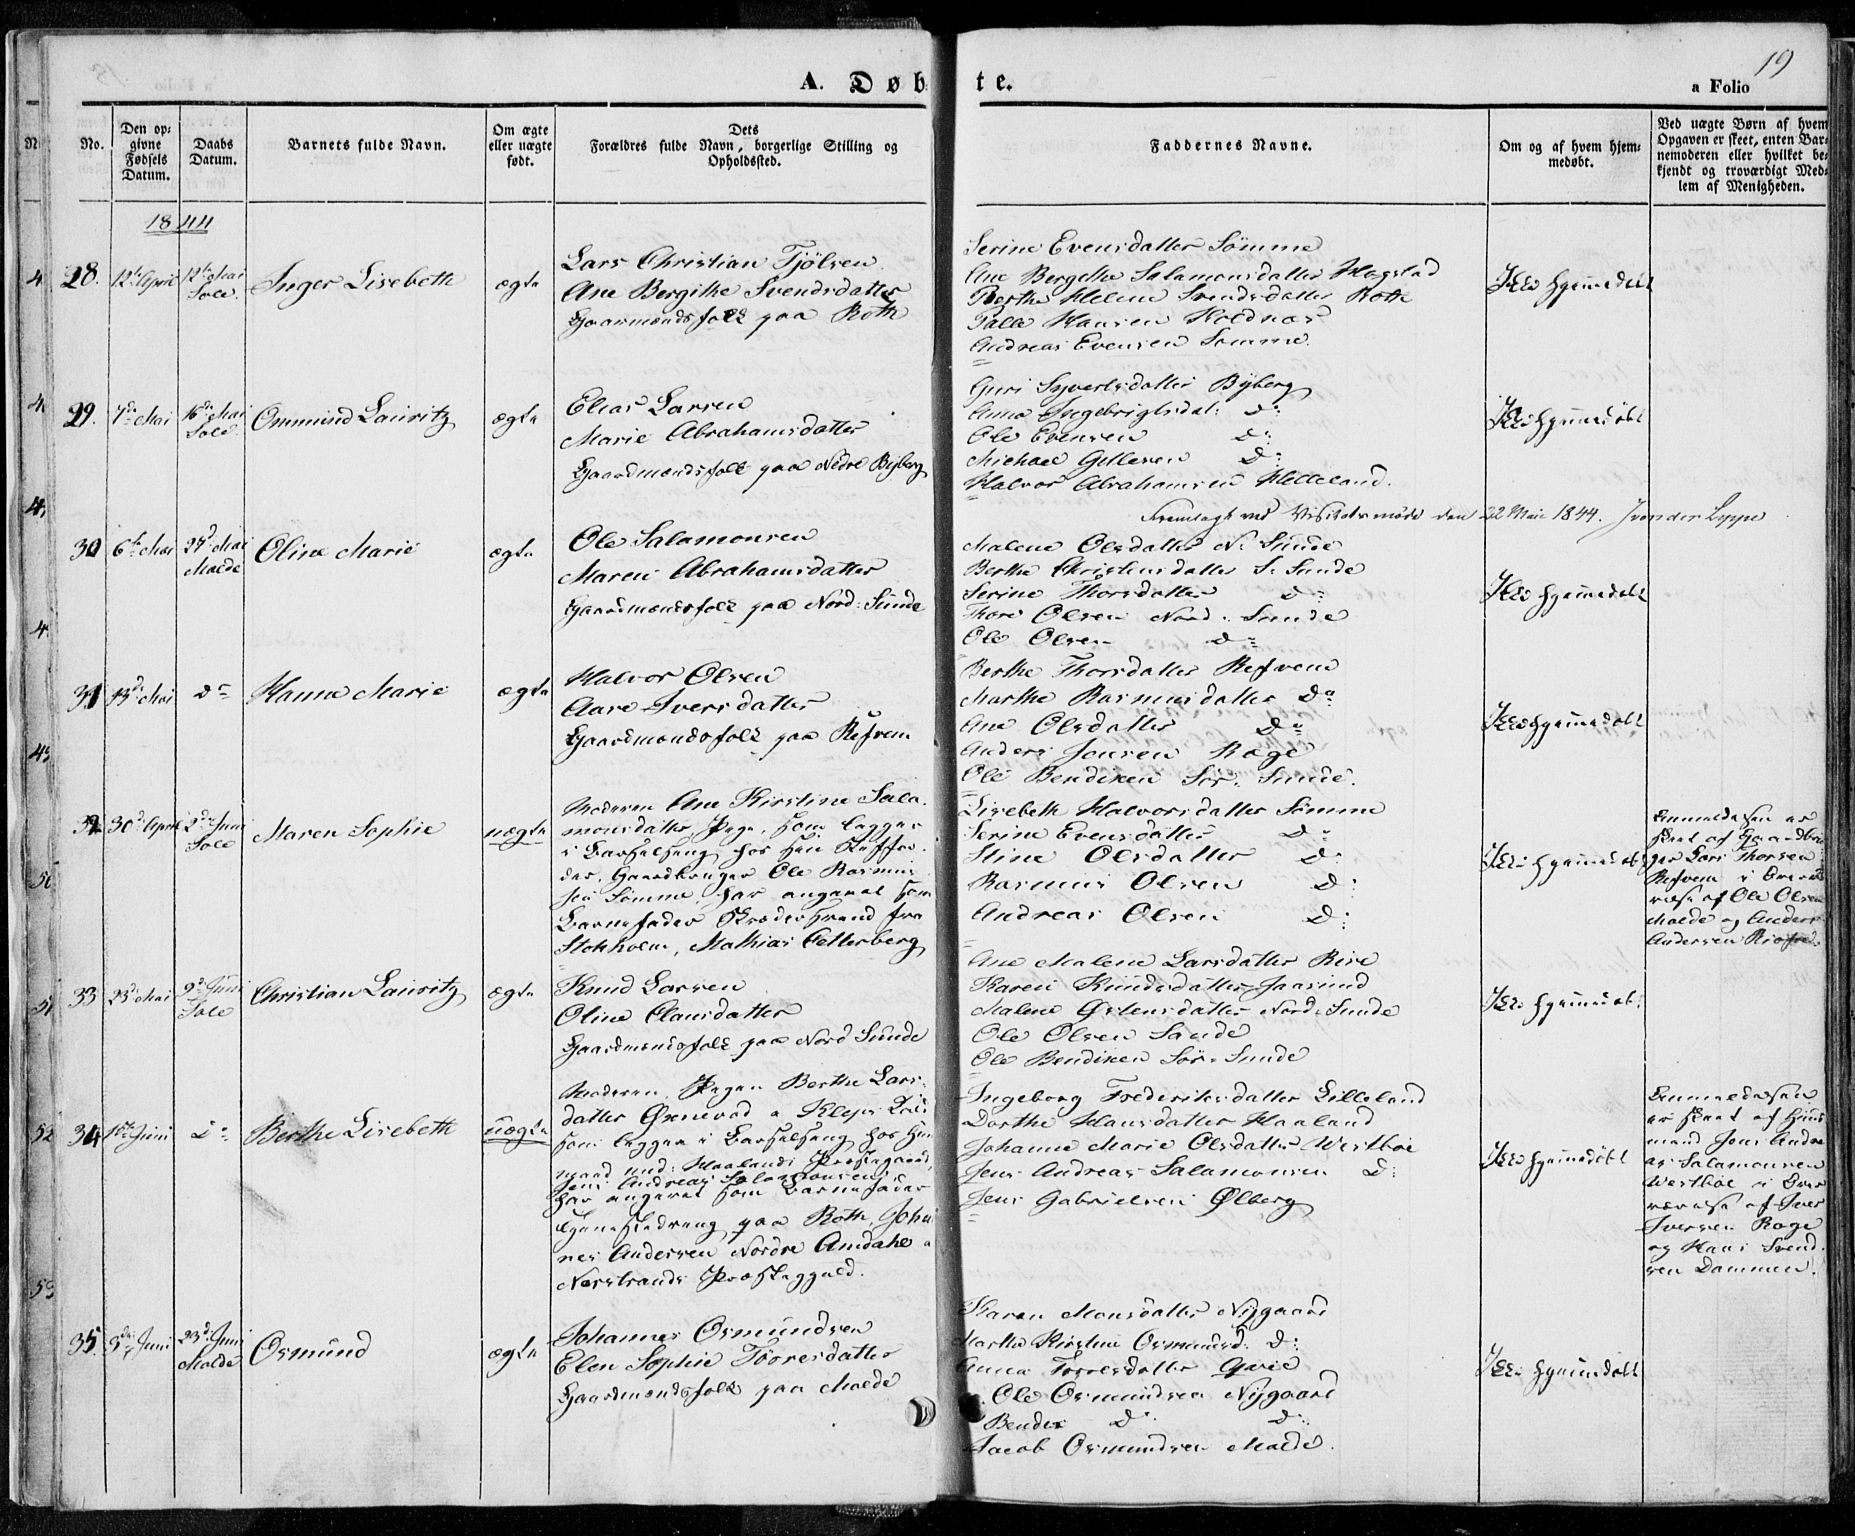 19
A. Døbte.
a Folio
No.
Den opgivne Fødsels Datum.
Daabs Datum.
Barnets fulde Navn.
Om ægte eller uægte født.
Dets Forældres fulde Navn, borgerlige Stilling og Opholdssted.
Faddernes Navne.
Om og af hvem hjemmedøbt.
Ved uægte Børn af hvem Opgaven er skeet, enten Barnemoderen eller hvilket bekjendt og troværdigt Medlem af Menigheden.
1844
28.
12te April
12te Mai
Sole.
Inger Lisebeth
ægte
Lars Christian Tjølsen
Ane Bergithe Svendsdatter
Gaarmandsfolk paa Roth
Serine Evensdatter Sømme
Ane Bergithe Salamonsdatter Hogstad
Berthe Helene Svendsdatter Roth
Palle Hansen Holdnæs
Andreas Evensen Sømme.
Ikke hjemmedøbt
29.
7de Mai
16de Mai
Sole
Ommund Lauritz
ægte
Elias Larsen
Marie Abrahamsdatter
Gaardmandsfolk paa Nedre Byberg
Guri Syvertsdatter Byberg
Anna Ingebrigtsdat: D:
Ole Evensen D:
Michael Gellesen D:
Halvor Abrahamsen Helleland.
Ikke hjemmedøbt
Fremlagt ved Visitatsmøde den 22 Mai 1844.
30
6te Mai
27d Mai
Malde
Oline Marie
ægte
Ole Salamonsen
Maren Abrahamsdatter
Gaardmandsfolk paa Nord: Sunde
Malene Olsdatter N: Sunde
Berthe Christensdatter S: Sunde
Serine Thorsdatter D:
Thore Olsen Nord: Sunde
Ole Olsen D:
Ikke hjemmedøbt
31
13d Mai
D:
Hanne Marie
ægte
Halvor Olsen
Aase Iversdatter
Gaardmandsfolk paa Refvem
Berthe Thorsdatter Refvem
Marthe Rasmusdatter D:
Ane Olsdatter D:
Anders Jensen Ræge
Ole Bendiken Sør: Sunde.
Ikke hjemmedøbt
32
30d April
2den Juni
Sole
Maren Sophie
uægte
Moderen Ane Kirstine Sala-
monsdatter, Pige, som ligger
i Barselseng hos sin Stiffa-
der, Gaardbruger Ole Rasmus-
sen Sømme, har angivet som
Barnefader Skrædersvend fra
Stokholm, Mathias Cetterberg
Lisebeth Halvorsdatter Sømme
Serine Evensdatter D:
Stine Olsdatter D:
Rasmus Olsen D:
Andreas Olsen D:
Ikke hjemmedøbt
Anmeldelsen er
skeet af Gaardbru-
ger Lars Thorsen
Refvem i Overvæ-
relse af Ole Olsen
Malde og Anders
Andersen
33
25d Mai
9d Juni
Sole
Christian Lauritz
ægte
Knud Larsen
Oline Clausdatter
Gaardmandsfolk paa Nord Sunde
Ane Malene Larsdatter Rise
Karen Knudsdatter Jaasund
Malene Østensdatter Nord: Sunde
Ole Olsen Sande
Ole Bendiken Sør: Sunde
Ikke hjemmedøbt
34
1ste Juni
D:
Berthe Lisebeth
uægte
Moderen, Pigen Berthe Lars-
datter Ørnevad a Kleps Præst
som ligger i Barselseng hos Huus-
mand und: Haalands Præstegaard,
Jens Andreas Salamonsen,
har angivet som Barnefader
Tjenestedreng paa Roth, Johan-
nes Andersen Nordre Amdahl a
Nerstrands Præstegjeld.
Ingeborg Frederiksdatter Lilleland
Dorthe Hansdatter Haaland
Johanne Marie Olsdatter Westbøe
Jens Andreas Salamonsen D:
Jens Gabrielsen Ølberg
Ikke hjemmedøbt
Anmeldelsen
er skeet af Huus-
mand Jens Andre-
as Salamonsen
Westbøe i Over-
værelse af Iver
Iversen Ræge
og Hans Svend-
sen Dammen.
35.
3die Juni
23d Juni
Malde
Osmund
ægte
Johannes Osmundsen
Elen Sophie Törresdatter
Gaardmandsfolk paa Malde
Karen Monsdatter Nygaard
Marthe Kirstine Osmunsd: D:
Anna Torresdatter
Ole Osmundsen Nygaard
Bendix D: D:
Jacob Osmundsen Malde.
Ikke hjemmedøbt